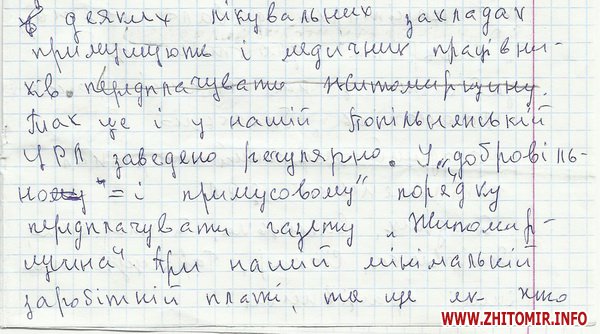 В деяких лікувальних закладах
примушують і медичних працівни-
ків передплачувати Житомирщину.
Так це і у нашій Попільнянській
ЦРЛ заведено регулярно. У „добровіль-
но = і примусовому" порядку
передплачувати газету „Житомир-
щина". При нашій мінімальній
заробітній платі, та ще як хто
WWW.ZHITOMIR.INFO